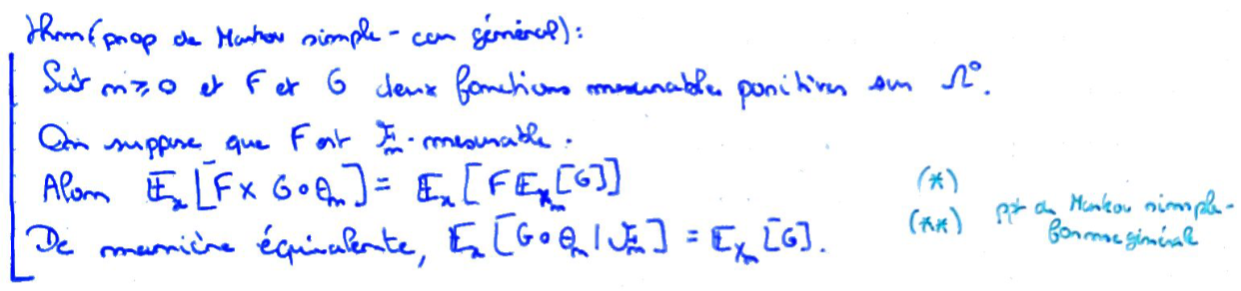 Thm (prop de Markov simple - cas général):
Soit n ≥ 0 et F et G deux fonctions mesurables positives sur Ω⁰.
On suppose que F est ℱₙ-mesurable.
Alors 𝔼ₓ[F × G∘θₙ] = 𝔼ₓ[F 𝔼_{Xₙ}[G]] (*)
De manière équivalente, 𝔼ₓ[G∘θₙ | ℱₙ] = 𝔼_{Xₙ}[G]. (**)
ppt de Markov simple -
forme général